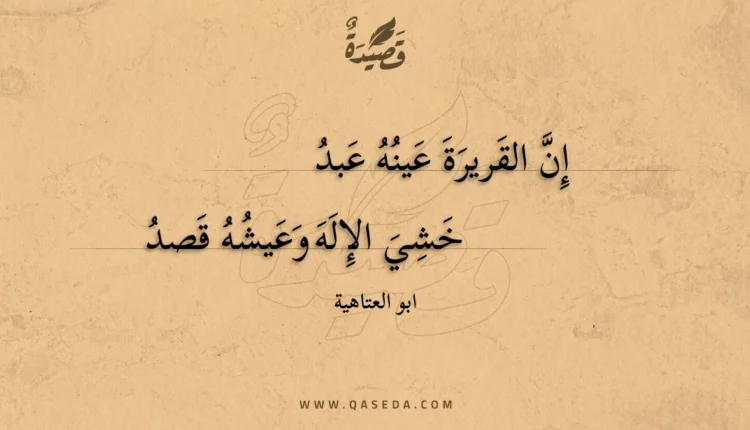 قَصِيدَةٌ
إِنَّ القَريرَةَ عَينُهُ عَبدُ
خَشِيَ الإِلَهَ وَعَيشُهُ قَصدُ
ابو العتاهية
WWW.QASEDA.COM